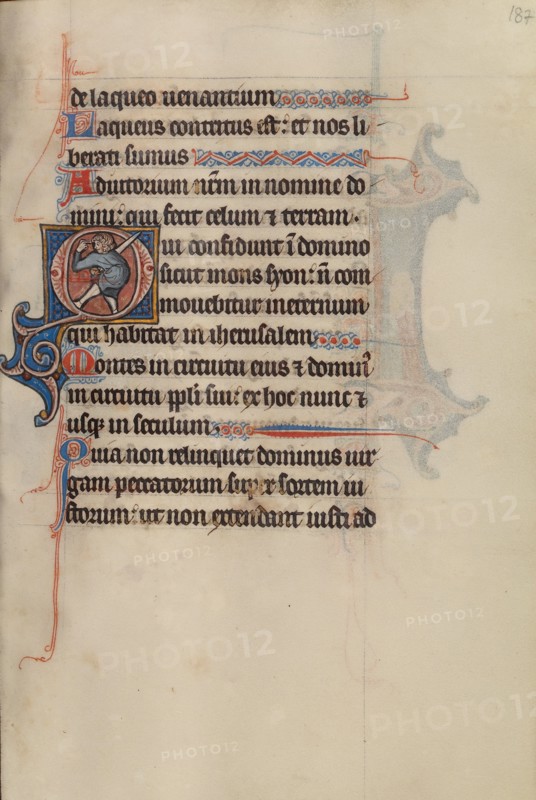 187
de laqueo uenantium
Laqueus contritus est: et nos li
berati sumus
Adiutorium nr̄m in nomine do
mini: qui fecit celum ⁊ terram.
Qui confidunt ī domino
sicut mons syon: n̄ com
mouebitur in eternum
qui habitat in iherusalem
Montes in circuitu eius ⁊ domin᾿
in circuitu pp̄li sui: ex hoc nunc ⁊
usq in seculum
Quia non relinquet dominus uir
gam peccatorum super sortem iu
storum: ut non extendant iusti ad
PHOTO12
PHOTO12
PHOTO12
PHOTO12
PHOTO12
PHOTO12
PHOTO12
PHOTO12
PHOTO12
PHOTO12
PHOTO12